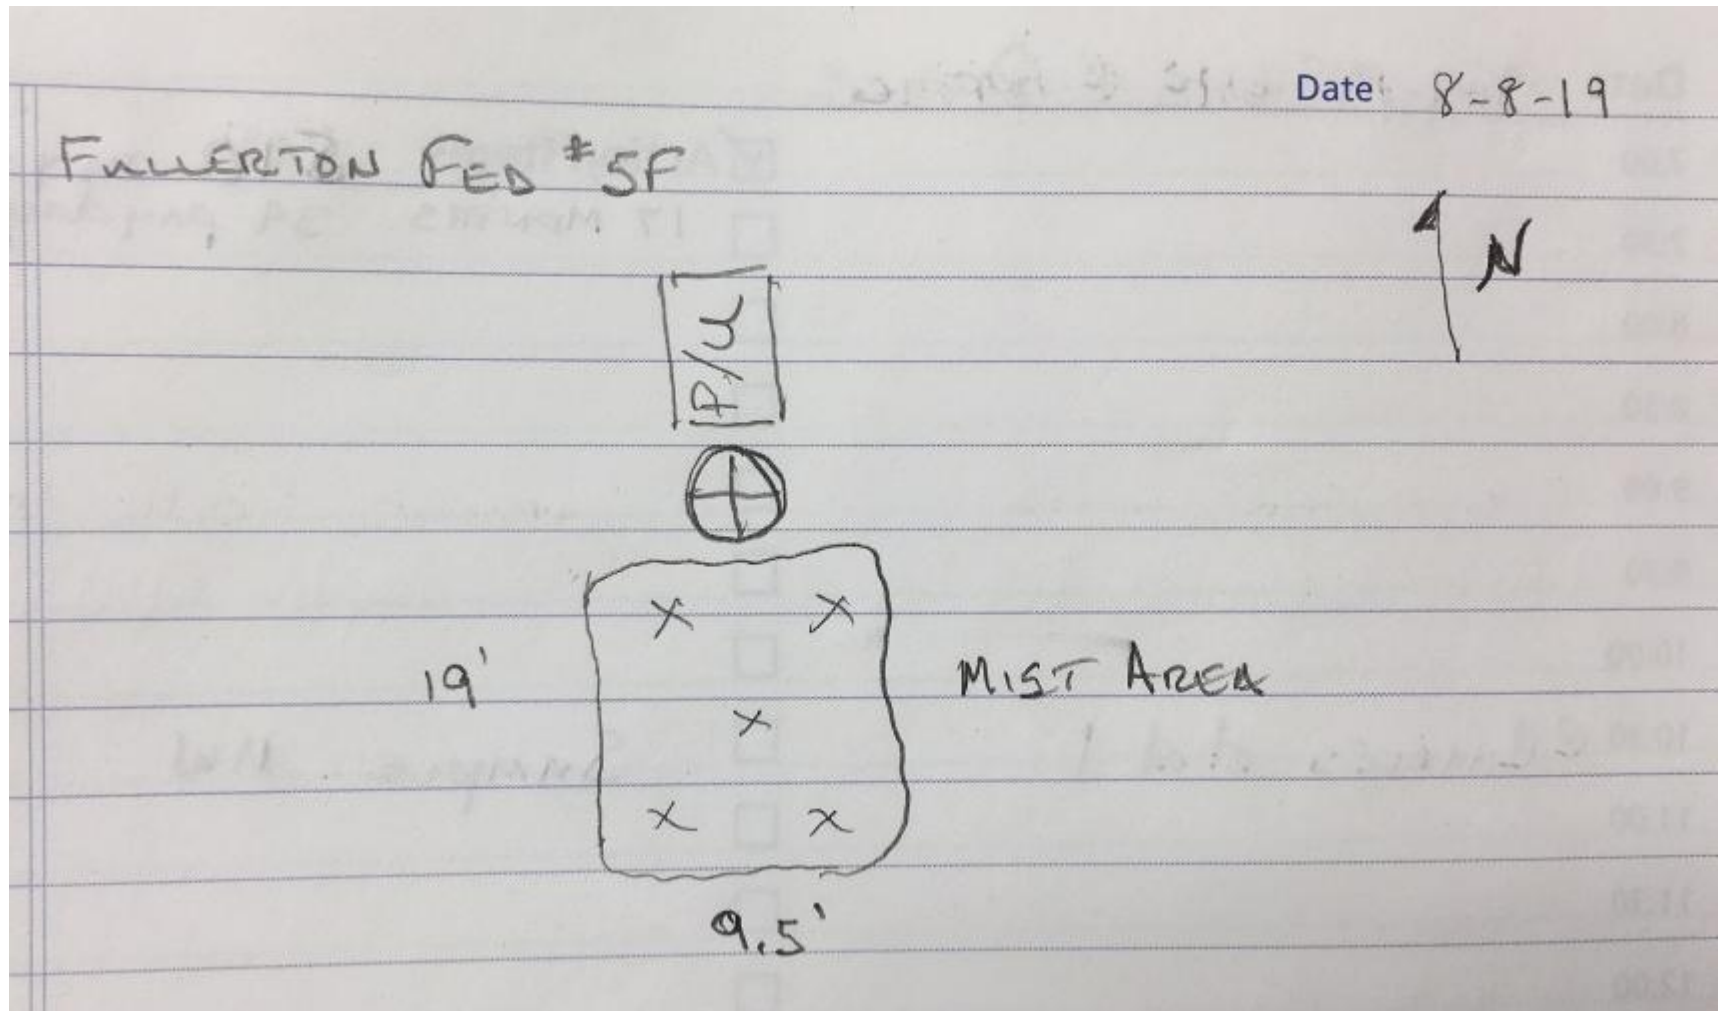 Date: 8-8-19
FULLERTON FED #5F
N
P/U
X X
19' MIST AREA
X
X X
9.5'